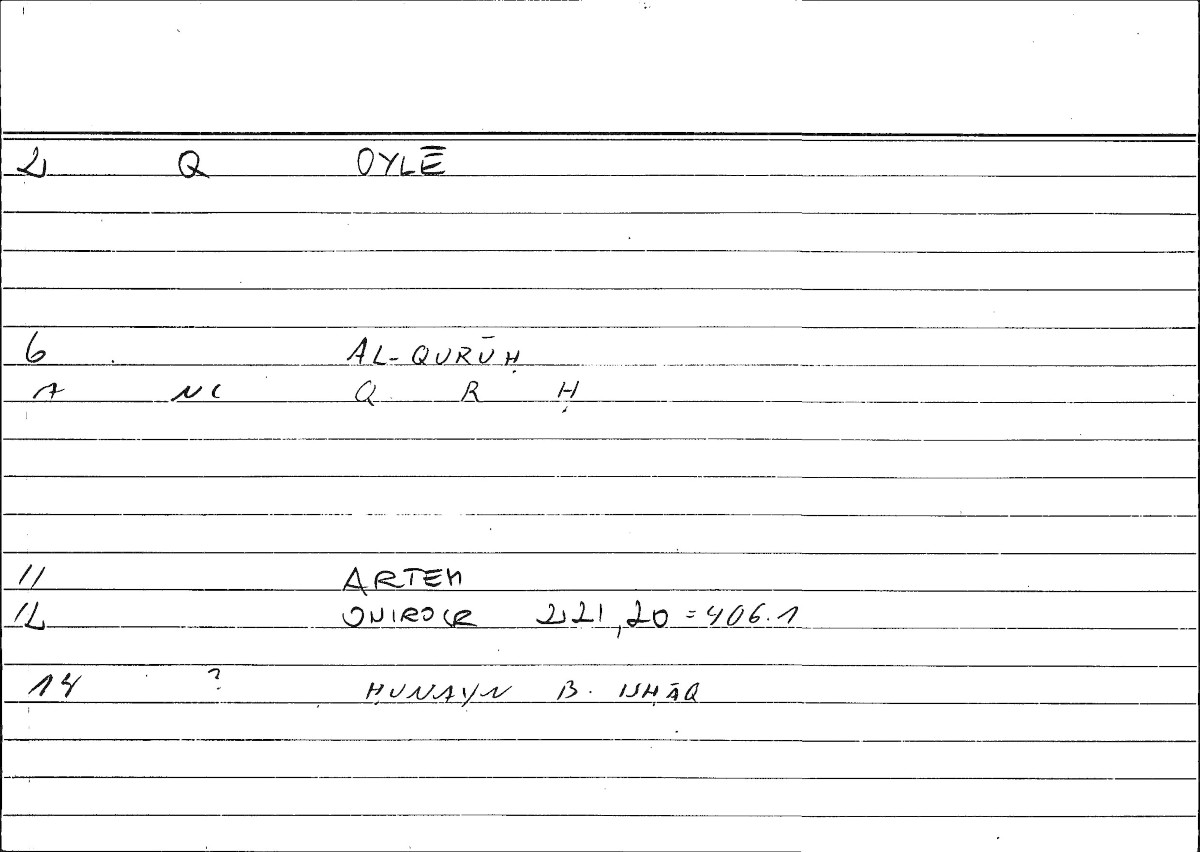 2 Q OYLĒ
6 AL-QURŪḤ
7 NC Q R Ḥ
11 ARTEM
12 ONIROCR 221,20 = 406.1
14 ? ḤUNAYN B. ISḤĀQ